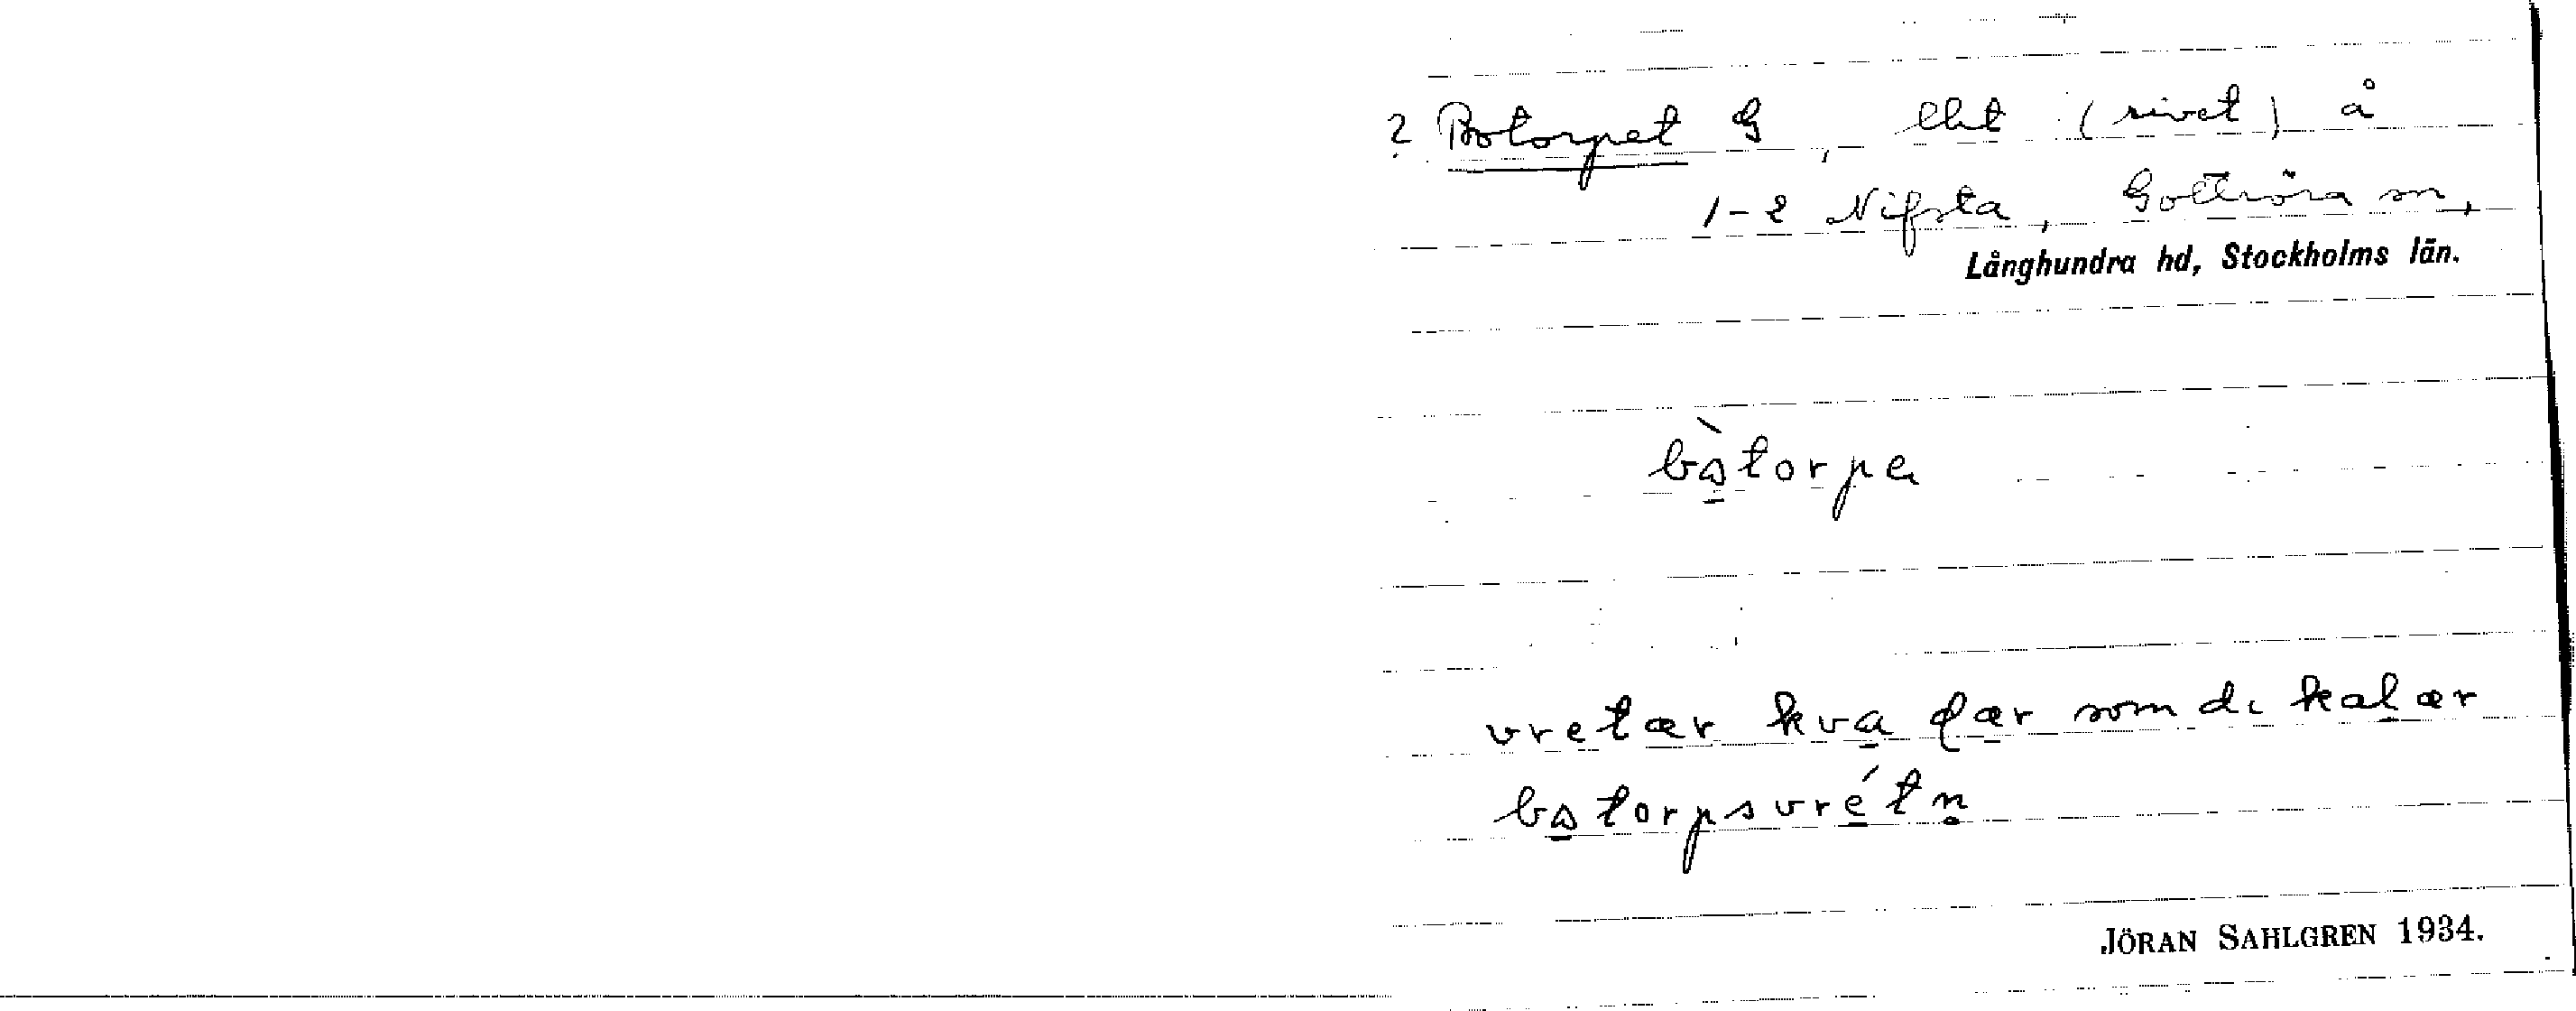 ? Botorpet G, lht (rivet) å
1-2 Nifsta, Gottröra sn,
Långhundra hd, Stockholms län.
bàtorpe
vretær kva dær som di kalær
batorpsvrétn
JÖRAN SAHLGREN 1934.